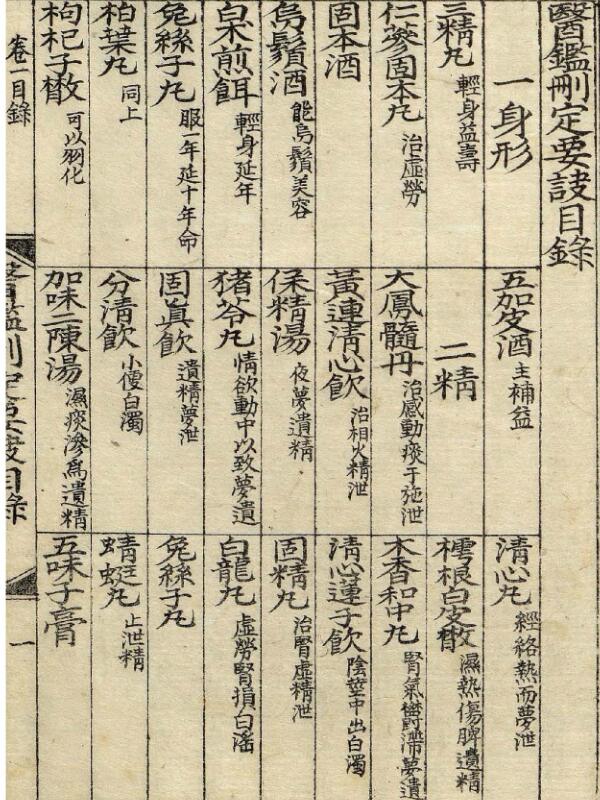 醫鑑刪定要訣目錄
一身形
三精丸 輕身益壽
仁蔘固本丸 治虛勞
固本酒
烏鬚酒 能烏鬚美容
白朮煎餌 輕身延年
兔絲子丸 服一年延十年命
柏葉丸 同上
枸杞子散 可以羽化
五加皮酒 主補益
二精
大鳳髓丹 治感動痰于施泄
黃連淸心飮 治相火精泄
保精湯 夜夢遺精
猪苓丸 情欲動中以致夢遺
固眞飮 遺精夢泄
分淸飮 小便白濁
加味二陳湯 濕痰滲爲遺精
淸心丸 經絡熱而夢泄
樗根白皮散 濕熱傷脾遺精
木香和中丸 腎氣鬱滯夢遺
淸心蓮子飮 陰莖中出白濁
固精丸 治腎虛精泄
白龍丸 虛勞腎損白淫
兔絲子丸
蜻蜓丸 止泄精
五味子膏
卷一目錄
醫鑑刪定要訣目錄
一